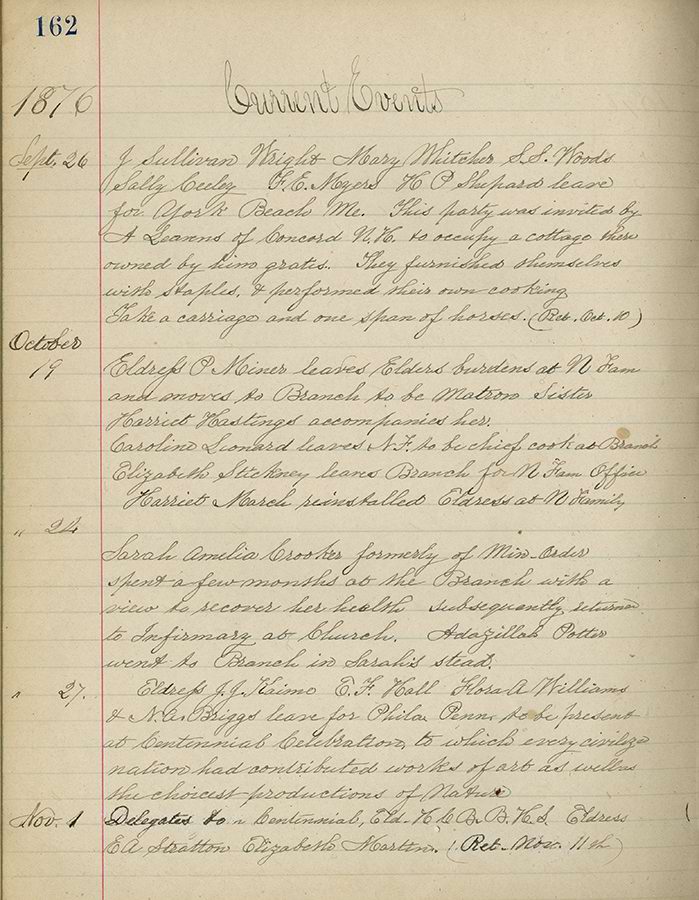 162
Current Events
1876
Sept. 26 J Sullivan Wright Mary Whitcher S.S. Woods
Sally Ceeley F. E. Myers H P Shepard leave
for York Beach Me. This party was invited by
A of Concord N.H. to occupy a cottage there
owned by him gratis. They furnished themselves
with staples, & performed their own cooking
Take a carriage and one span of horses. (Ret. Oct. 10)
October
19 Eldress P Miner leaves Elders burdens at N Fam
and moves to Branch to be Matron Sister
Harriet Hastings accompanies her.
Caroline Leonard leaves N.F. to be chief cook at Branch
Elizabeth Stickney leaves Branch for N Fam Office
Harriet March reinstalled Eldress at N Family
" 24
Sarah Amelia Crooker formerly of Min-Order
spent a few months at the Branch with a
view to recover her health subsequently returned
to Infirmary at Church. Adazillah Potter
went to Branch in Sarah's stead.
" 27. Eldress J. J. Kaime E. F. Hall Flora A Williams
& N. A. Briggs leave for Phila Penn to be present
at Centennial Celebration, to which every civilize
nation had contributed works of art as well as
the choicest productions of Nature
Nov. 1 Delegates to " Centennial, Eld. H. C. B. B. H. S. Eldress
E A Stratton Elizabeth Martin. (Ret. Nov. 11th)